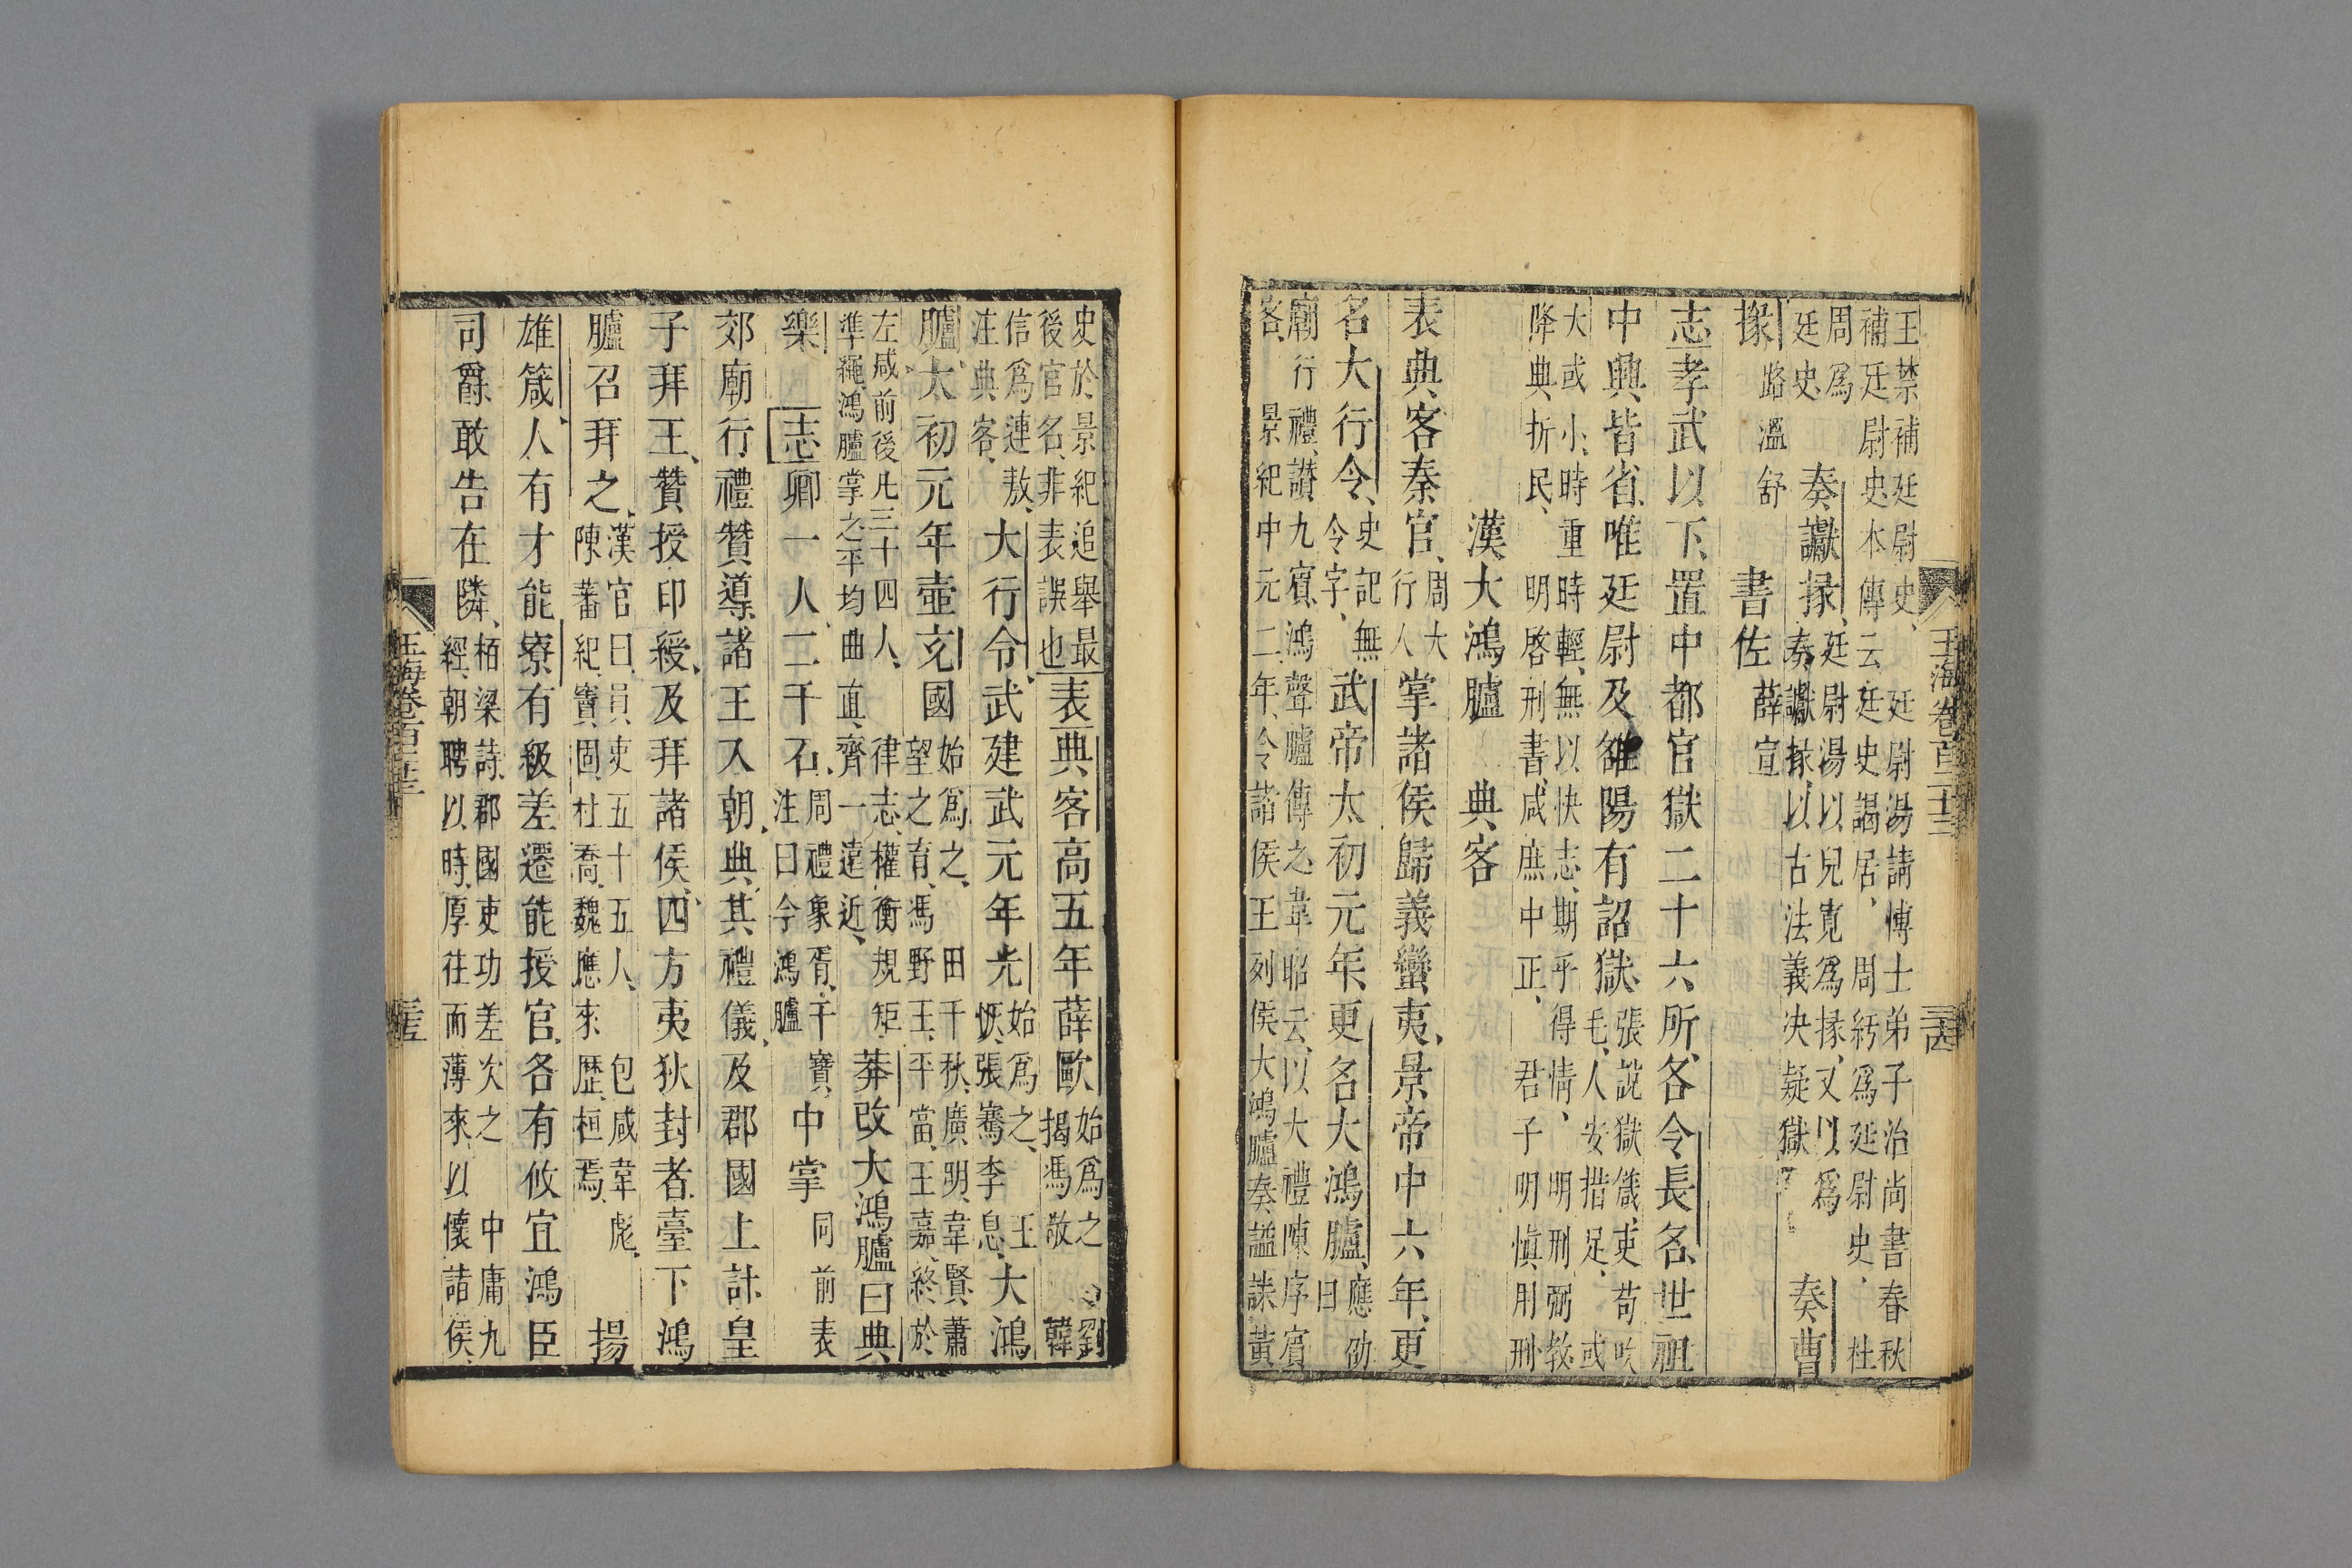 王禁補廷尉史、廷尉湯請博士弟子治尚書春秋
補廷尉史本傳云廷史謁居、周紆為廷尉史、杜
周為廷史奏讞掾、廷尉湯以兒寬為掾、又以為奏讞掾以古法義決疑獄奏曹
掾路溫舒書佐薛宣
志孝武以下、置中都官獄二十六所、各令長名、世祖
中興、皆省、唯廷尉及雒陽有詔獄、張説獄箴、吏苟吹毛、人安措足、或
大或小、時重時輕、無以快志、期乎得情、明刑弼教
降典折民、明啓刑書、咸庶中正、君子明慎用刑
漢大鴻臚 典客
表典客秦官、周大行人掌諸侯歸義蠻夷、景帝中六年、更
名大行令、史記無令字、武帝太初元年、更名大鴻臚、應劭曰
廟行禮、讃九賓、鴻聲臚傳之韋昭云、以大禮陳序賓
客、景紀中元二年、令諸侯王列侯大鴻臚奏謚誄黃
玉海卷百二十三
二十四
史於景紀追舉最後官名、非表誤也表典客高五年薛歐始為之劉揭馮敬韓
信為連敖、注典客、大行令、武建武元年光始為之、王恢、張騫李息、大鴻
臚、太初元年壺充國始為之、田千秋、廣明、韋賢蕭望之育、馮野王、平當、王嘉、終於
左咸前後凡三十四人、律志、權衡規矩準繩鴻臚掌之平均曲直、齊一遠近、莽改大鴻臚曰典
樂 志卿一人、二千石、周禮象胥、干寶注曰今鴻臚中掌同前表
郊廟行禮贊導諸王入朝、典其禮儀、及郡國上計皇
子拜王、贊授印綬、及拜諸侯、四方夷狄封者臺下鴻
臚召拜之、漢官曰、員吏五十五人、包咸韋彪陳蕃紀寶固杜喬、魏應來歷桓焉、揚
雄箴、人有才能寮有級差遷能授官各有攸宜鴻臣
司爵敢告在隣、栢梁詩、郡國吏功差次之中庸九
經、朝聘以時、厚往而薄來以懷諸侯、
玉海卷百二十三